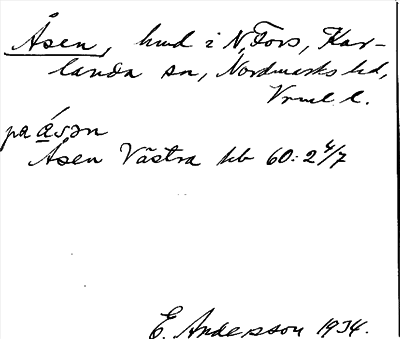 Åsen, hmd i N. Fors, Kar-
landa sn, Nordmarks hd,
Vrml. l.
pa ásən
Åsen Västra hb 60:2 4/7
E. Andersson 1934.